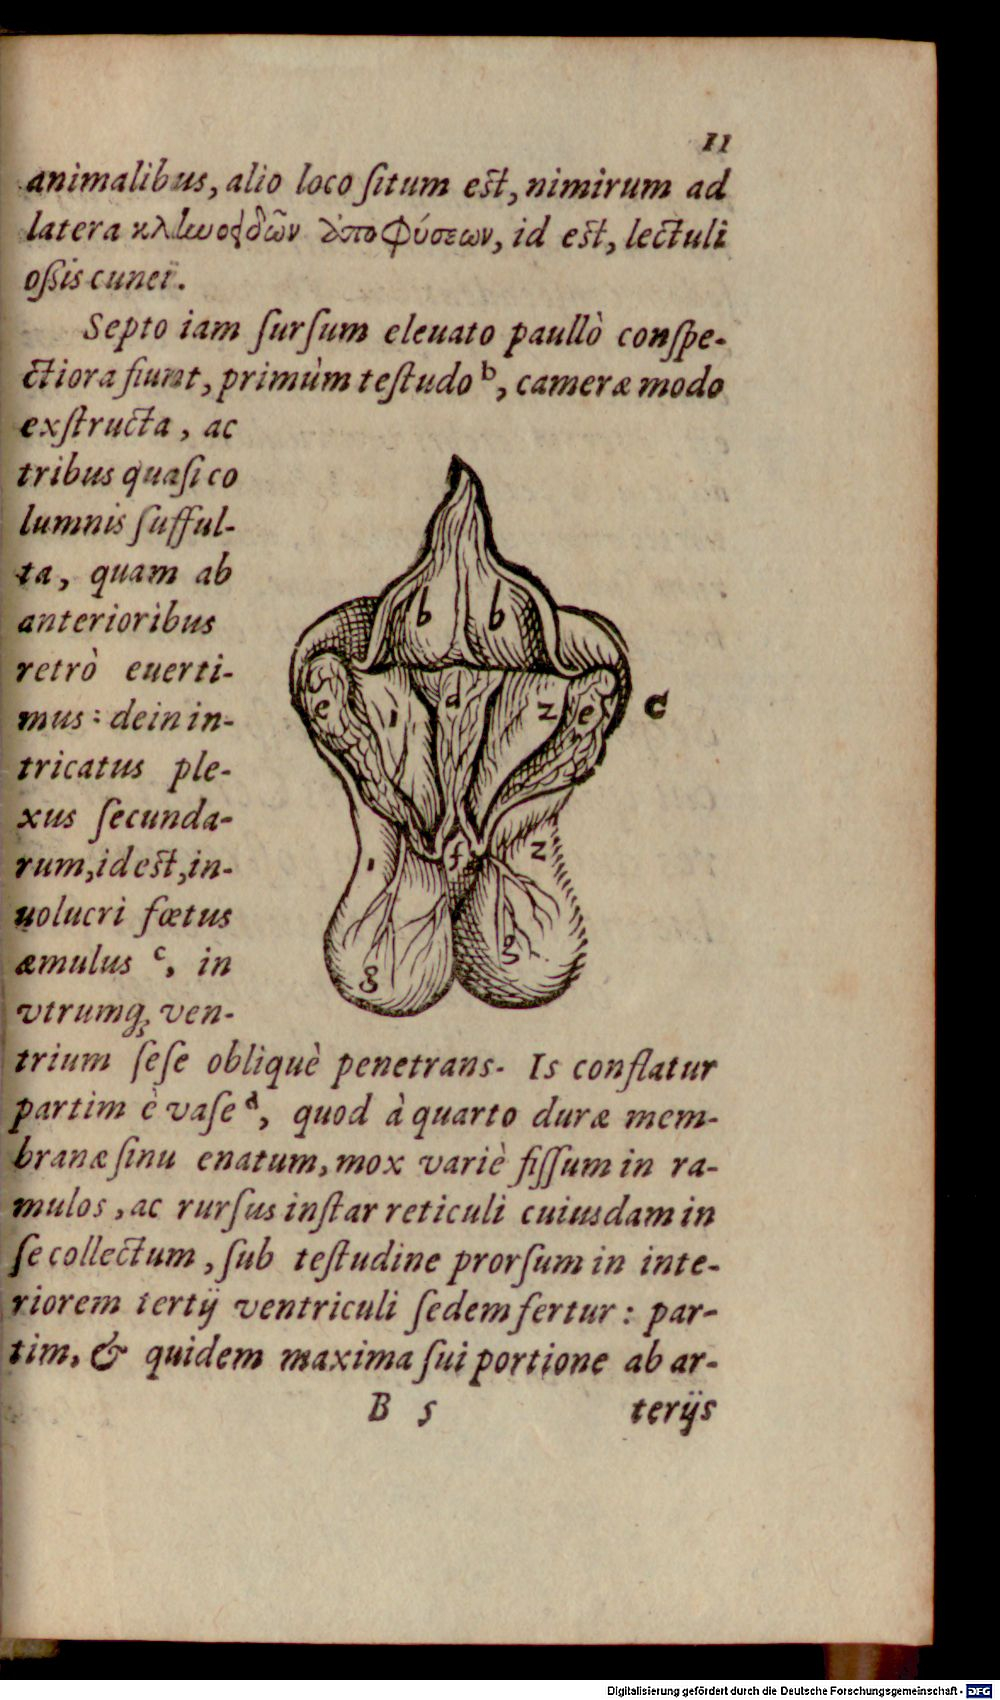 11
animalibus, alio loco ſitum eſt, nimirum ad
latera κλινοειδῶν ἀποφύσεων, id eſt, lectuli
oſsis cunei.
Septo iam ſurſum eleuato paullò conſpe-
ctiora fiunt, primùm teſtudo b, cameræ modo
exſtructa, ac
tribus quaſi co
lumnis ſufful-
ta, quam ab
anterioribus
retrò euerti-
mus: dein in-
tricatus ple-
xus ſecunda-
rum, id eſt, in-
uolucri fœtus
æmulus c, in
vtrumq; ven-
b b
e i d z e C
f
ı z
g g
trium ſeſe obliquè penetrans. Is conflatur
partim è vaſe d, quod à quarto duræ mem-
branæ ſinu enatum, mox variè fiſſum in ra-
mulos, ac rurſus inſtar reticuli cuiusdam in
ſe collectum, ſub teſtudine prorſum in inte-
riorem tertij ventriculi ſedem fertur: par-
tim, & quidem maxima ſui portione ab ar-
B 5 terijs
Digitalisierung gefördert durch die Deutsche Forschungsgemeinschaft - DFG